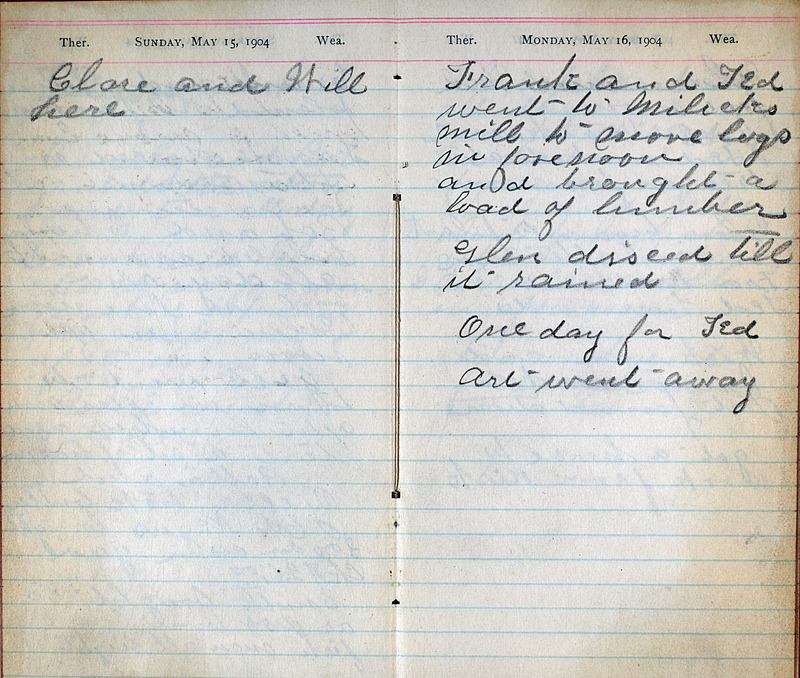 Ther. Sunday, May 15, 1904 Wea.
Clare and Will
here
Ther. Monday, May 16, 1904 Wea.
Frank and Ted
went to
mill to move logs
in forenoon
and brought a
load of lumber
Glen disced till
it rained
One day for Ted
Art went away